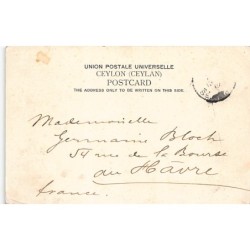 UNION POSTALE UNIVERSELLE
CEYLON (CEYLAN)
POSTCARD
THE ADDRESS ONLY TO BE WRITTEN ON THIS SIDE.
Mademoiselle
Germaine Bloch
54 rue de la Bourse
au Hâvre
france.